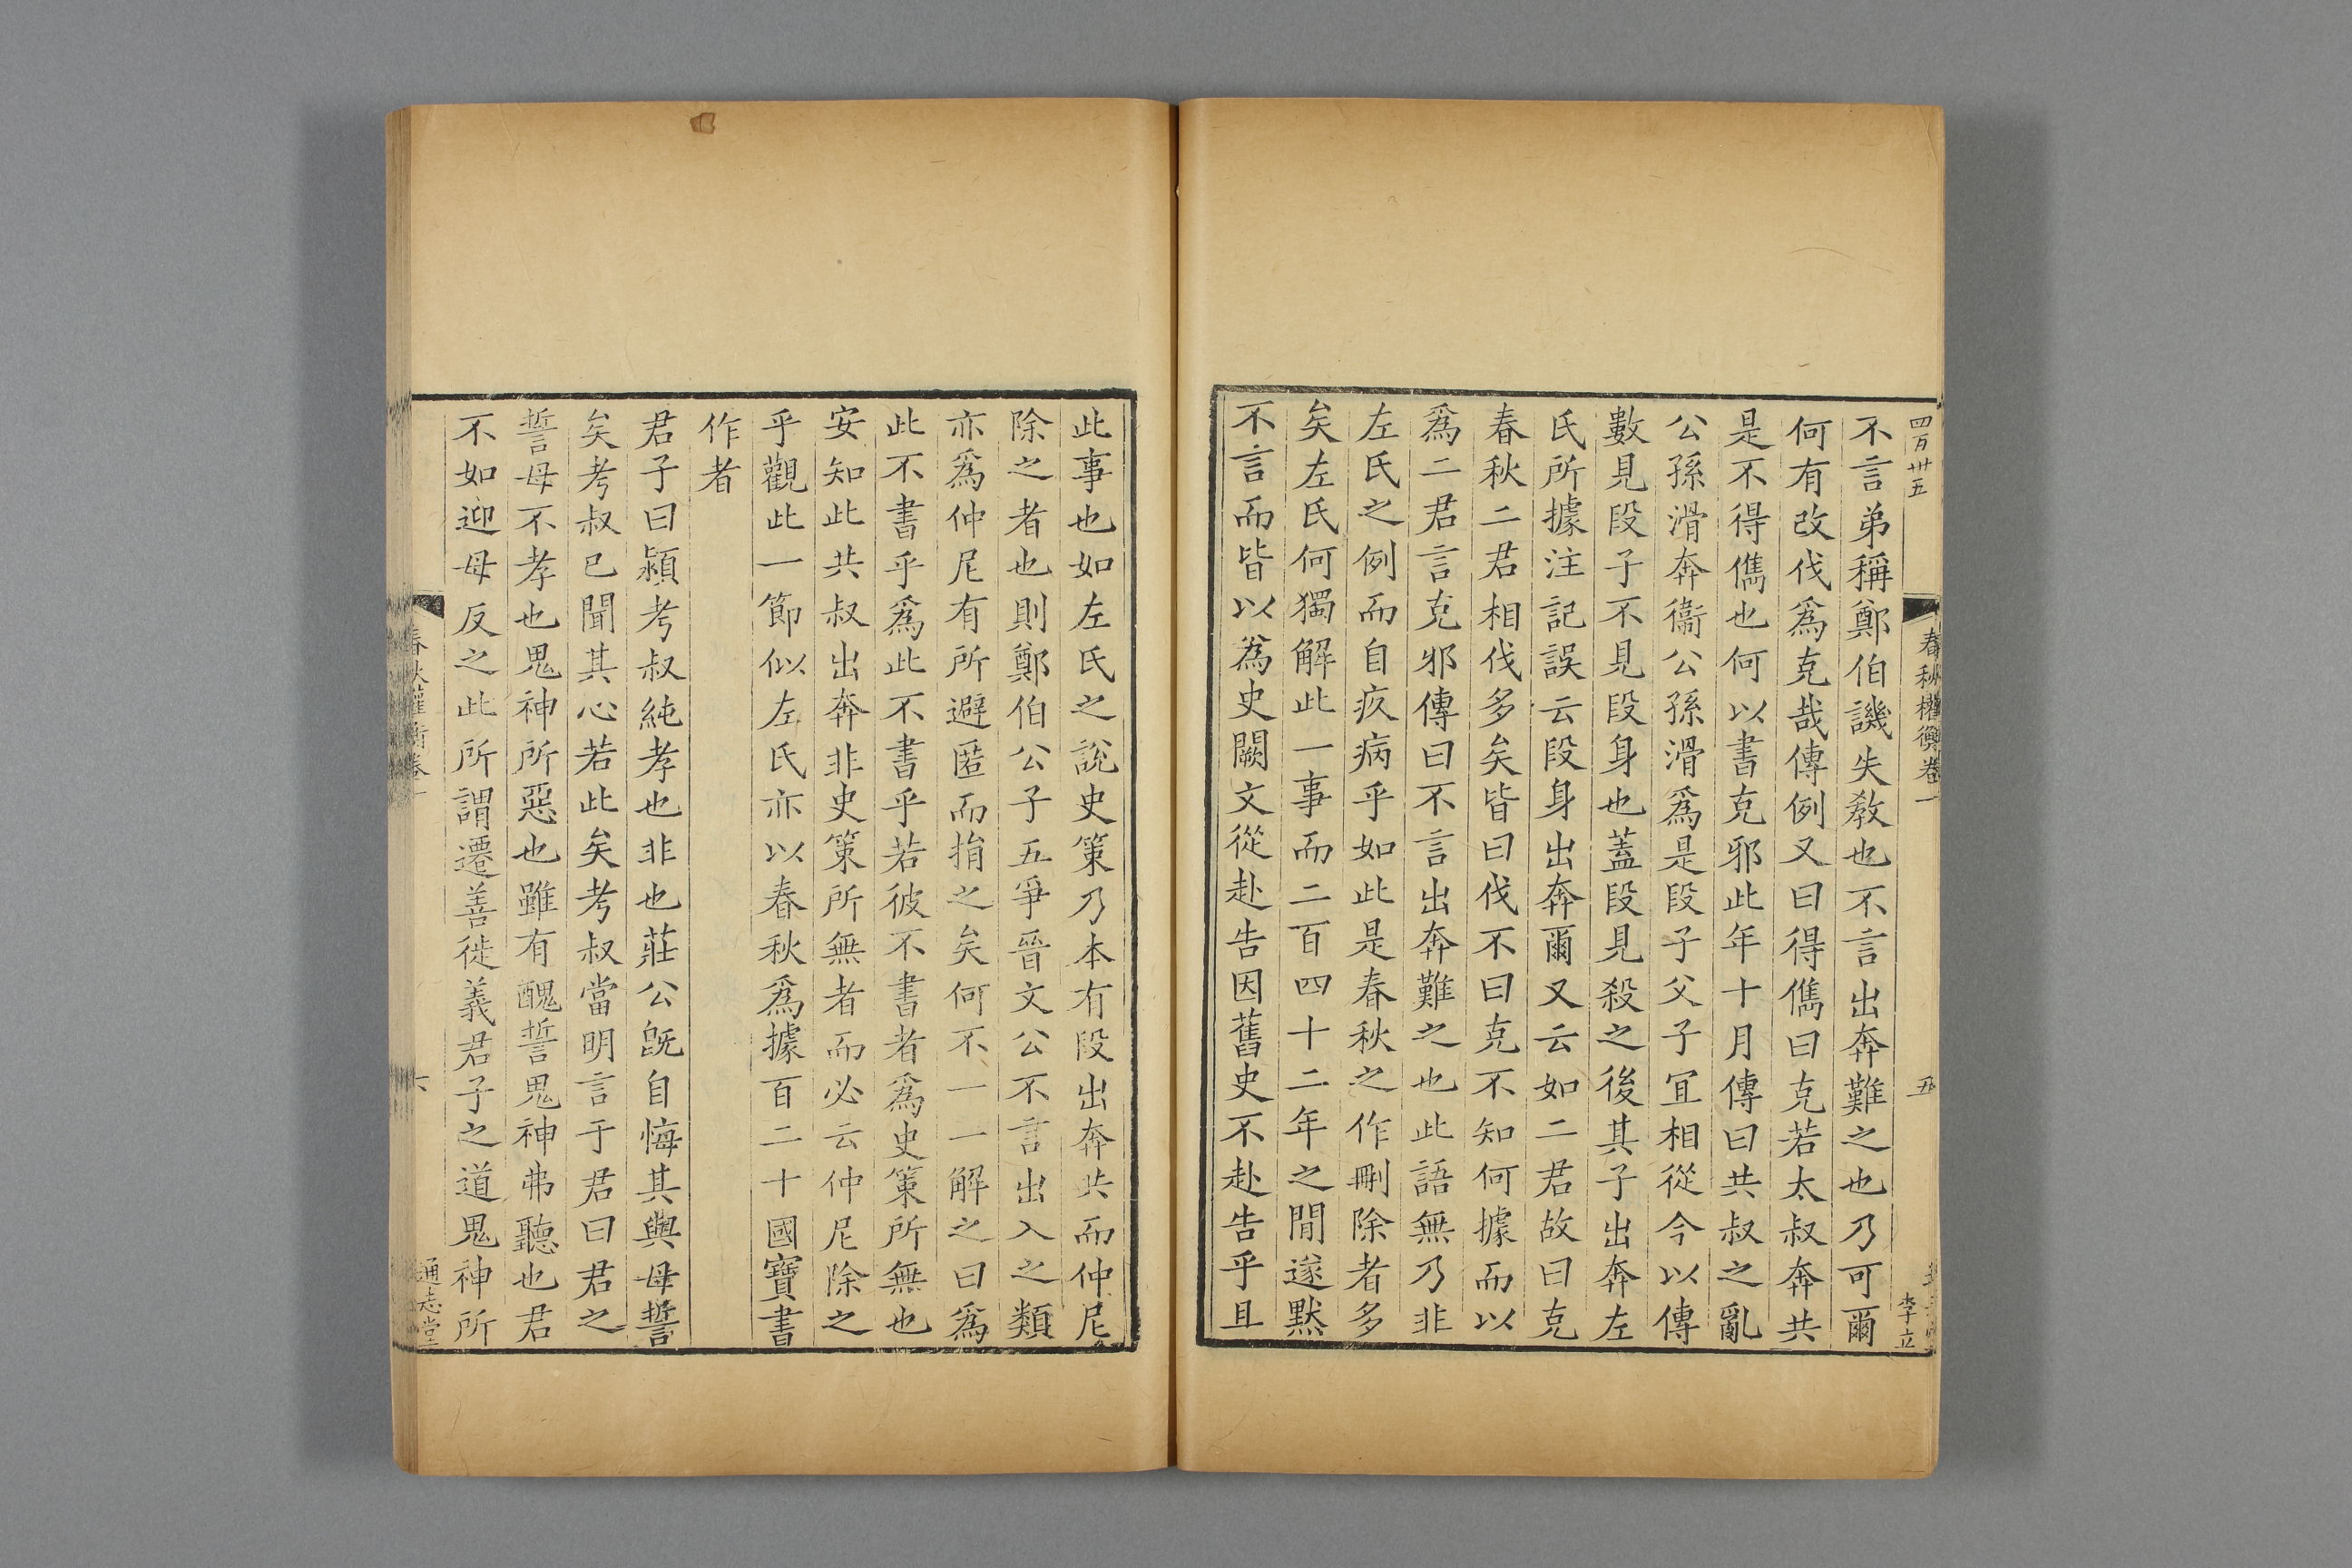 四百卅五
春秋權衡卷一
五
李立
不言弟稱鄭伯譏失教也不言出奔難之也乃可爾
何有改伐爲克哉傳例又曰得儁曰克若太叔奔共
是不得儁也何以書克邪此年十月傳曰共叔之亂
公孫滑奔衞公孫滑爲是段子父子宜相從今以傳
數見段子不見段身也蓋段見殺之後其子出奔左
氏所據注記誤云段身出奔爾又云如二君故曰克
春秋二君相伐多矣皆曰伐不曰克不知何據而以
爲二君言克邪傳曰不言出奔難之也此語無乃非
左氏之例而自疚病乎如此是春秋之作刪除者多
矣左氏何獨解此一事而二百四十二年之間遂黙
不言而皆以爲史闕文從赴告因舊史不赴告乎且
此事也如左氏之說史策乃本有段出奔共而仲尼
除之者也則鄭伯公子五爭晉文公不言出入之類
亦爲仲尼有所避匿而捐之矣何不一一解之曰爲
此不書乎爲此不書乎若彼不書者爲史策所無也
安知此共叔出奔非史策所無者而必云仲尼除之
乎觀此一節似左氏亦以春秋爲據百二十國寶書
作者
君子曰潁考叔純孝也非也莊公旣自悔其與母誓
矣考叔已聞其心若此矣考叔當明言于君曰君之
誓母不孝也鬼神所惡也雖有醜誓鬼神弗聽也君
不如迎母反之此所謂遷善徙義君子之道鬼神所
春秋權衡卷一
六
通志堂